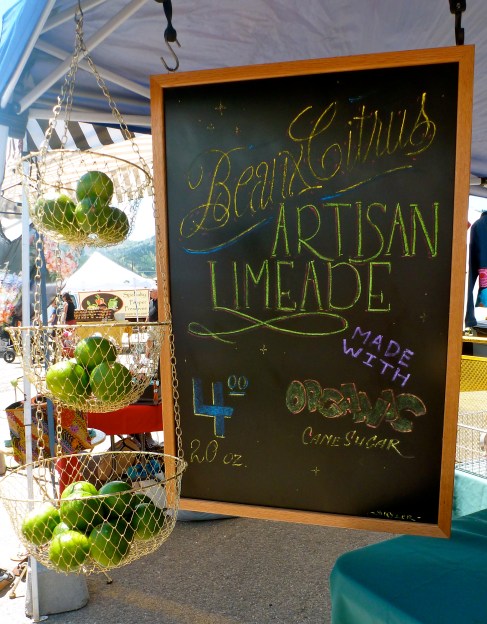 Bean & Citrus
ARTISAN
LIMEADE
MADE
WITH
4.00
ORGANIC
CANE SUGAR
20 oz.